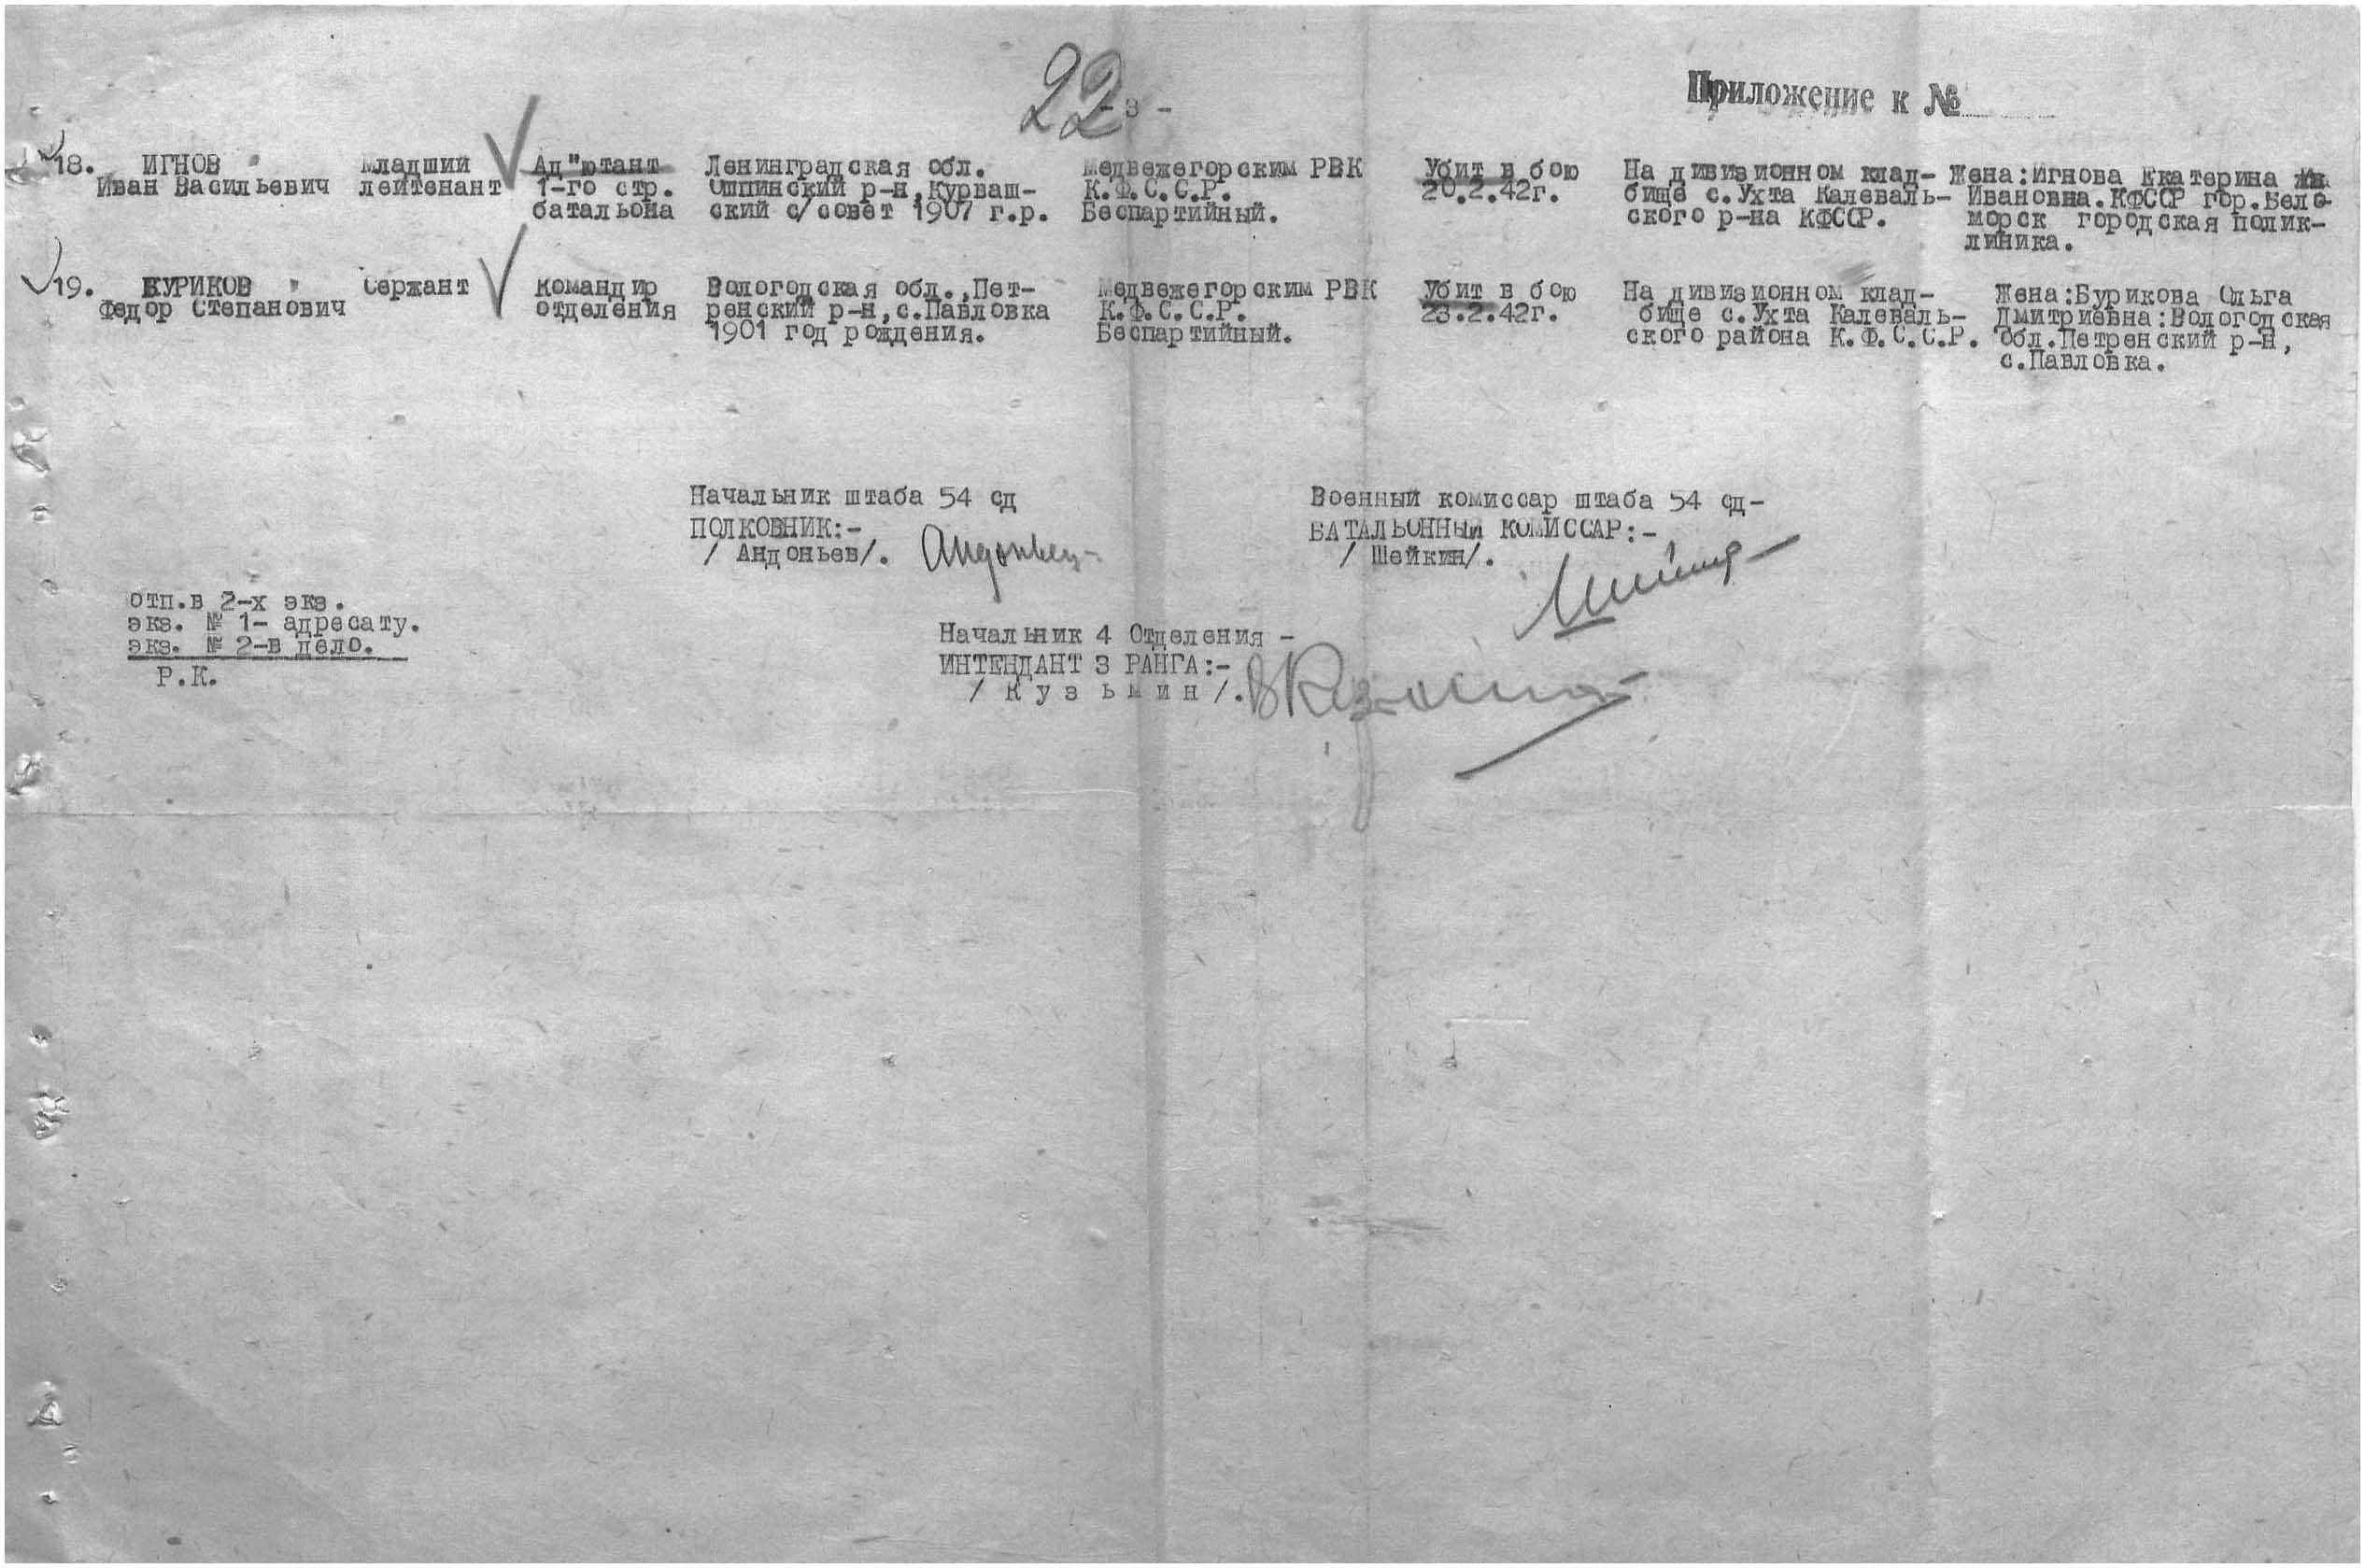 22
- 3 -
Приложение к №
18. ИГНОВ младший Ад"ютант Ленинградская обл. Медвежегорским РВК Убит в бою На дивизионном клад- Жена:Игнова Екатерина
Иван Васильевич лейтенант 1-го стр. Ошпинский р-н,Курваш- К.Ф.С.С.Р. 20.2.42г. бище с.Ухта Калеваль- Ивановна.КФССР гор.Бело-
батальона ский с/совет 1907 г.р. Беспартийный. ского р-на КФССР. морск городская полик-
линика.
19. БУРИКОВ Сержант Командир Вологодская обл.,Пет- Медвежегорским РВК Убит в бою На дивизионном клад- Жена:Бурикова Ольга
Федор Степанович отделения ренский р-н,с.Павловка К.Ф.С.С.Р. 23.2.42г. бище с.Ухта Калеваль- Дмитриевна:Вологодская
1901 год рождения. Беспартийный. ского района К.Ф.С.С.Р. обл.Петренский р-н,
с.Павловка.
Начальник штаба 54 сд Военный комиссар штаба 54 сд-
ПОЛКОВНИК:- БАТАЛЬОННЫЙ КОМИССАР:-
/ Андоньев/. / Шейкин/.
отп.в 2-х экз.
экз. № 1- адресату.
экз. № 2-в дело.
Р.К.
Начальник 4 Отделения -
ИНТЕНДАНТ 3 РАНГА:-
/ К у з ь м и н /.